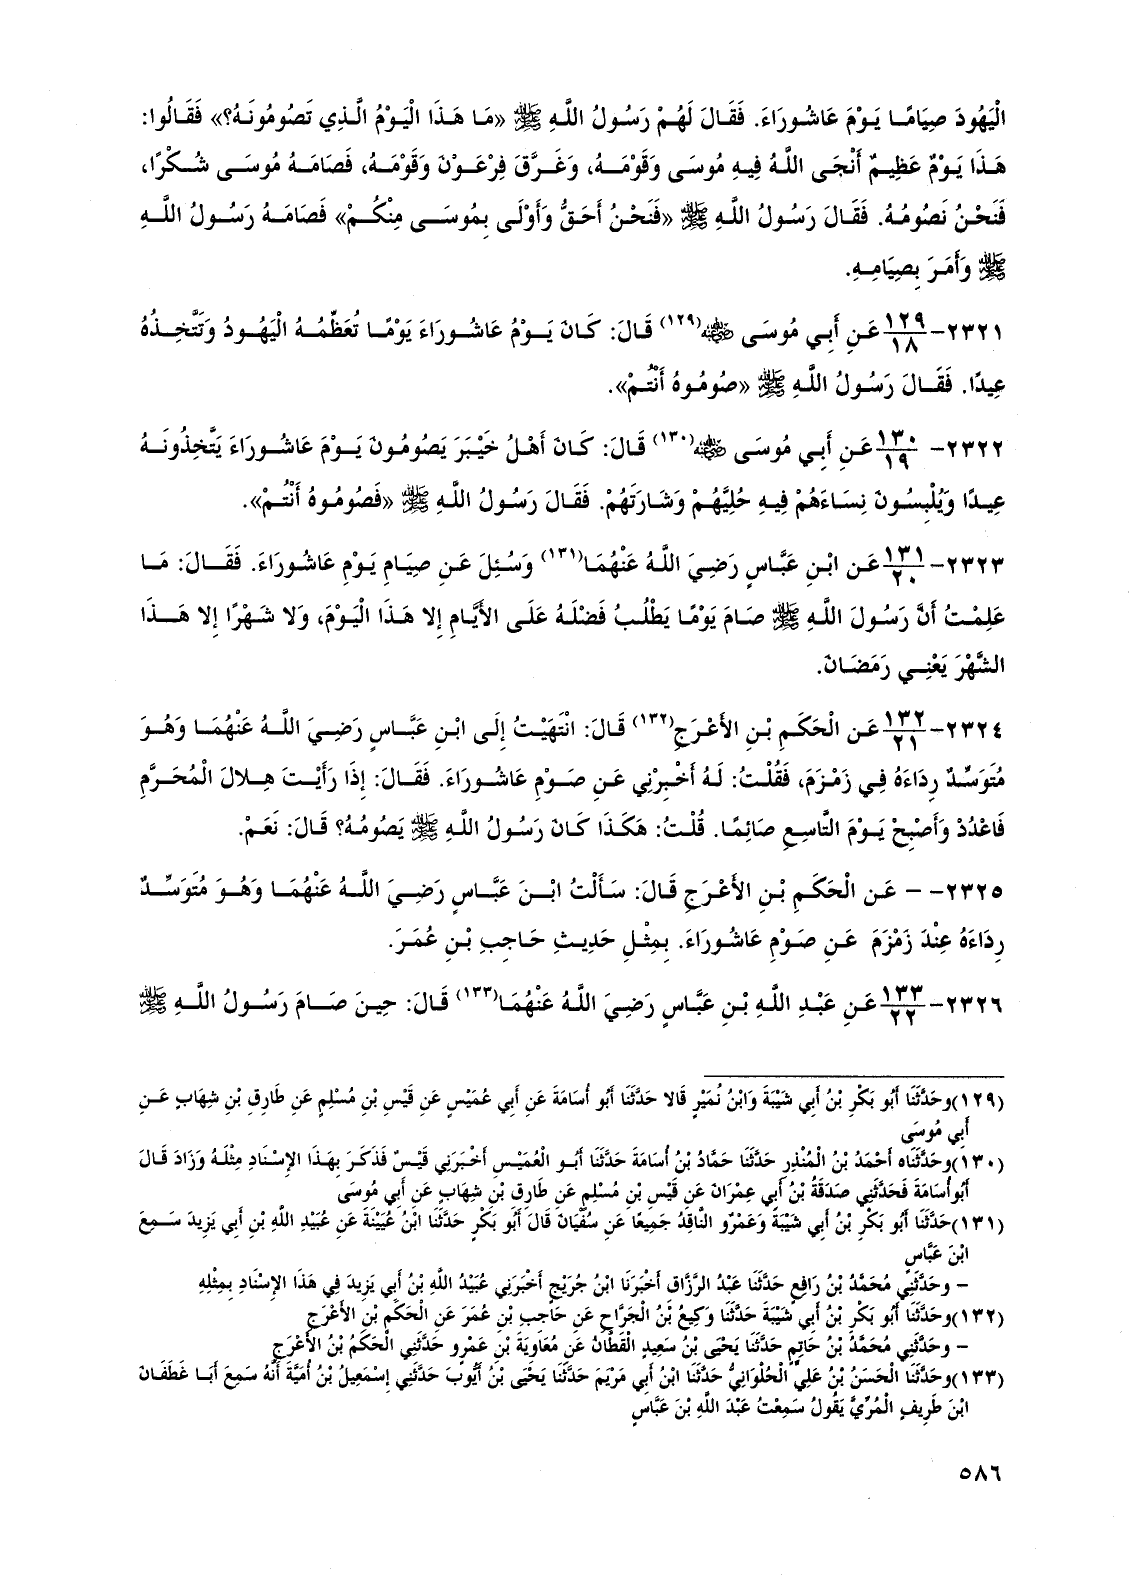 الْيَهُودَ صِيَامًا يَوْمَ عَاشُورَاءَ. فَقَالَ لَهُمْ رَسُولُ اللَّهِ ﷺ «مَا هَذَا الْيَوْمُ الَّذِي تَصُومُونَهُ؟» فَقَالُوا:
هَذَا يَوْمٌ عَظِيمٌ أَنْجَى اللَّهُ فِيهِ مُوسَى وَقَوْمَهُ، وَغَرَّقَ فِرْعَوْنَ وَقَوْمَهُ، فَصَامَهُ مُوسَى شُكْرًا،
فَنَحْنُ نَصُومُهُ. فَقَالَ رَسُولُ اللَّهِ ﷺ «فَنَحْنُ أَحَقُّ وَأَوْلَى بِمُوسَى مِنْكُمْ» فَصَامَهُ رَسُولُ اللَّهِ
ﷺ وَأَمَرَ بِصِيَامِهِ.
٢٣٢١- ١٢٩/١٨ عَنِ أَبِي مُوسَى ﷺ(١٢٩) قَالَ: كَانَ يَوْمُ عَاشُورَاءَ يَوْمًا تُعَظِّمُهُ الْيَهُودُ وَتَتَّخِذُهُ
عِيدًا. فَقَالَ رَسُولُ اللَّهِ ﷺ «صُومُوهُ أَنْتُمْ».
٢٣٢٢- ١٣٠/١٩ عَنِ أَبِي مُوسَى ﷺ(١٣٠) قَالَ: كَانَ أَهْلُ خَيْبَرَ يَصُومُونَ يَوْمَ عَاشُورَاءَ يَتَّخِذُونَهُ
عِيدًا وَيُلْبِسُونَ نِسَاءَهُمْ فِيهِ حُلِيَّهُمْ وَشَارَتَهُمْ. فَقَالَ رَسُولُ اللَّهِ ﷺ «فَصُومُوهُ أَنْتُمْ».
٢٣٢٣- ١٣١/٢٠ عَنِ ابْنِ عَبَّاسٍ رَضِيَ اللَّهُ عَنْهُمَا(١٣١) وَسُئِلَ عَنِ صِيَامِ يَوْمِ عَاشُورَاءَ. فَقَالَ: مَا
عَلِمْتُ أَنَّ رَسُولَ اللَّهِ ﷺ صَامَ يَوْمًا يَطْلُبُ فَضْلَهُ عَلَى الأَيَّامِ إِلا هَذَا الْيَوْمَ، وَلا شَهْرًا إِلا هَذَا
الشَّهْرَ يَعْنِي رَمَضَانَ.
٢٣٢٤- ١٣٢/٢١ عَنِ الْحَكَمِ بْنِ الأَعْرَجِ(١٣٢) قَالَ: انْتَهَيْتُ إِلَى ابْنِ عَبَّاسٍ رَضِيَ اللَّهُ عَنْهُمَا وَهُوَ
مُتَوَسِّدٌ رِدَاءَهُ فِي زَمْزَمَ، فَقُلْتُ: لَهُ أَخْبِرْنِي عَنِ صَوْمِ عَاشُورَاءَ. فَقَالَ: إِذَا رَأَيْتَ هِلالَ الْمُحَرَّمِ
فَاعْدُدْ وَأَصْبِحْ يَوْمَ التَّاسِعِ صَائِمًا. قُلْتُ: هَكَذَا كَانَ رَسُولُ اللَّهِ ﷺ يَصُومُهُ؟ قَالَ: نَعَمْ.
٢٣٢٥- – عَنِ الْحَكَمِ بْنِ الأَعْرَجِ قَالَ: سَأَلْتُ ابْنَ عَبَّاسٍ رَضِيَ اللَّهُ عَنْهُمَا وَهُوَ مُتَوَسِّدٌ
رِدَاءَهُ عِنْدَ زَمْزَمَ عَنِ صَوْمِ عَاشُورَاءَ. بِمِثْلِ حَدِيثِ حَاجِبِ بْنِ عُمَرَ.
٢٣٢٦- ١٣٣/٢٢ عَنِ عَبْدِ اللَّهِ بْنِ عَبَّاسٍ رَضِيَ اللَّهُ عَنْهُمَا(١٣٣) قَالَ: حِينَ صَامَ رَسُولُ اللَّهِ ﷺ
(١٢٩)وحَدَّثَنَا أَبُو بَكْرِ بْنُ أَبِي شَيْبَةَ وَابْنُ نُمَيْرٍ قَالا حَدَّثَنَا أَبُو أُسَامَةَ عَنِ أَبِي عُمَيْسٍ عَنِ قَيْسِ بْنِ مُسْلِمٍ عَنِ طَارِقِ بْنِ شِهَابٍ عَنِ
أَبِي مُوسَى
(١٣٠)وحَدَّثَنَاه أَحْمَدُ بْنُ الْمُنْذِرِ حَدَّثَنَا حَمَّادُ بْنُ أُسَامَةَ حَدَّثَنَا أَبُو الْعُمَيْسِ أَخْبَرَنِي قَيْسٌ فَذَكَرَ بِهَذَا الإِسْنَادِ مِثْلَهُ وَزَادَ قَالَ
أَبُو أُسَامَةَ فَحَدَّثَنِي صَدَقَةُ بْنُ أَبِي عِمْرَانَ عَنِ قَيْسِ بْنِ مُسْلِمٍ عَنِ طَارِقِ بْنِ شِهَابٍ عَنِ أَبِي مُوسَى
(١٣١)حَدَّثَنَا أَبُو بَكْرِ بْنُ أَبِي شَيْبَةَ وَعَمْرٌو النَّاقِدُ جَمِيعًا عَنِ سُفْيَانَ قَالَ أَبُو بَكْرٍ حَدَّثَنَا ابْنُ عُيَيْنَةَ عَنِ عُبَيْدِ اللَّهِ بْنِ أَبِي يَزِيدَ سَمِعَ
ابْنَ عَبَّاسٍ
– وحَدَّثَنِي مُحَمَّدُ بْنُ رَافِعٍ حَدَّثَنَا عَبْدُ الرَّزَّاقِ أَخْبَرَنَا ابْنُ جُرَيْجٍ أَخْبَرَنِي عُبَيْدُ اللَّهِ بْنُ أَبِي يَزِيدَ فِي هَذَا الإِسْنَادِ بِمِثْلِهِ
(١٣٢)وحَدَّثَنَا أَبُو بَكْرِ بْنُ أَبِي شَيْبَةَ حَدَّثَنَا وَكِيعُ بْنُ الْجَرَّاحِ عَنِ حَاجِبِ بْنِ عُمَرَ عَنِ الْحَكَمِ بْنِ الأَعْرَجِ
– وحَدَّثَنِي مُحَمَّدُ بْنُ حَاتِمٍ حَدَّثَنَا يَحْيَى بْنُ سَعِيدٍ الْقَطَّانُ عَنِ مُعَاوِيَةَ بْنِ عَمْرٍو حَدَّثَنِي الْحَكَمُ بْنُ الأَعْرَجِ
(١٣٣)وحَدَّثَنَا الْحَسَنُ بْنُ عَلِيٍّ الْحُلْوَانِيُّ حَدَّثَنَا ابْنُ أَبِي مَرْيَمَ حَدَّثَنَا يَحْيَى بْنُ أَيُّوبَ حَدَّثَنِي إِسْمَعِيلُ بْنُ أُمَيَّةَ أَنَّهُ سَمِعَ أَبَا غَطَفَانَ
ابْنَ طَرِيفٍ الْمُرِّيَّ يَقُولُ سَمِعْتُ عَبْدَ اللَّهِ بْنَ عَبَّاسٍ
٥٨٦